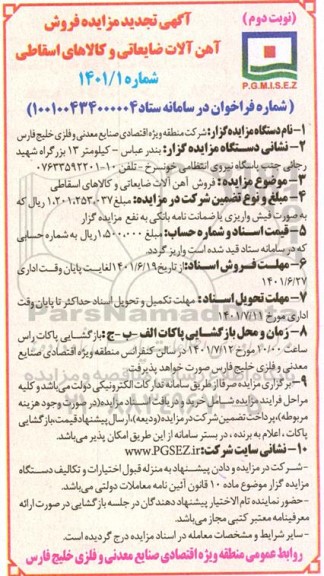 (نوبت دوم)
آگهی تجدید مزایده فروش
آهن آلات ضایعاتی و کالاهای اسقاطی
شماره ۱۴۰۱/۱
P.G.M.I.S.E.Z
(شماره فراخوان در سامانه ستاد ۱۰۰۱۰۰۴۳۴۰۰۰۰۰۴)
۱- نام دستگاه مزایده گزار: شرکت منطقه ویژه اقتصادی صنایع معدنی و فلزی خلیج فارس
۲- نشانی دستگاه مزایده گزار: بندر عباس - کیلومتر ۱۳ بزرگراه شهید
رجائی جنب باسگاه نیروی انتظامی خونسرخ - تلفن ۱۰-۰۷۶۳۳۵۹۲۲۰۱
۳- موضوع مزایده: فروش آهن آلات ضایعاتی و کالاهای اسقاطی
۴- مبلغ و نوع تضمین شرکت در مزایده: مبلغ ۱،۲۰۱،۲۵۳،۰۳۷ ریال که
به صورت فیش واریزی یا ضمانت نامه بانکی به نفع مزایده گزار
۵- قیمت اسناد و شماره حساب: مبلغ ۱،۵۰۰،۰۰۰ ریال به شماره حسابی
که در سامانه ستاد قید شده است واریز گردد.
۶- مهلت فروش اسناد: از تاریخ ۱۴۰۱/۶/۱۹ لغایت پایان وقت اداری
۱۴۰۱/۶/۲۷
۷- مهلت تحویل اسناد: مهلت تکمیل و تحویل اسناد حداکثر تا پایان وقت
اداری مورخ ۱۴۰۱/۷/۱۱
۸- زمان و محل بازگشایی پاکات الف-ب-ج: بازگشایی پاکات راس
ساعت ۱۰/۰۰ مورخ ۱۴۰۱/۷/۱۲ در سالن کنفرانس منطقه ویژه اقتصادی صنایع
معدنی و فلزی خلیج فارس صورت خواهد پذیرفت.
۹- برگزاری مزایده صرفا از طریق سامانه تدارکات الکترونیکی دولت می باشد و کلیه
مراحل فرایند مزایده شامل خرید و دریافت اسناد مزایده (در صورت وجود هزینه
مربوطه)، پرداخت تضمین شرکت در مزایده (ودیعه)، ارسال پیشنهاد قیمت، بازگشایی
پاکات، اعلام به برنده، در بستر سامانه از این طریق امکان پذیر می باشد.
۱۰- نشانی سایت شرکت: www.PGSEZ.ir
- شرکت در مزایده و دادن پیشنهاد به منزله قبول اختیارات و تکالیف دستگاه
مزایده گزار موضوع ماده ۱۰ قانون آئین نامه معاملات دولتی می باشد.
- حضور نماینده تام الاختیار پیشنهاد دهندگان در جلسه بازگشایی در صورت ارائه
معرفینامه معتبر کتبی مجاز می باشد.
- سایر شرایط و مشخصات معامله در اسناد مزایده درج گردیده است.
روابط عمومی منطقه ویژه اقتصادی صنایع معدنی و فلزی خلیج فارس